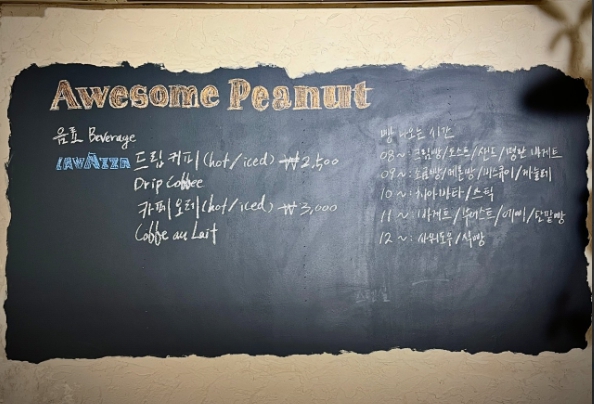 Awesome Peanut
음료 Beverage
LAVAZZA 드립커피(hot/iced) ₩2,500
Drip Coffee
카페오레(hot/iced) ₩3,000
Coffee au Lait
빵 나오는 시간
08~: 크림빵/토스트/샌드/명란바게트
09~: 소금빵/메론빵/휘낭시에/까눌레
10~: 치아바타/스틱
11~: 바게트/부어스트/에삐/단팥빵
12~: 사워도우/식빵